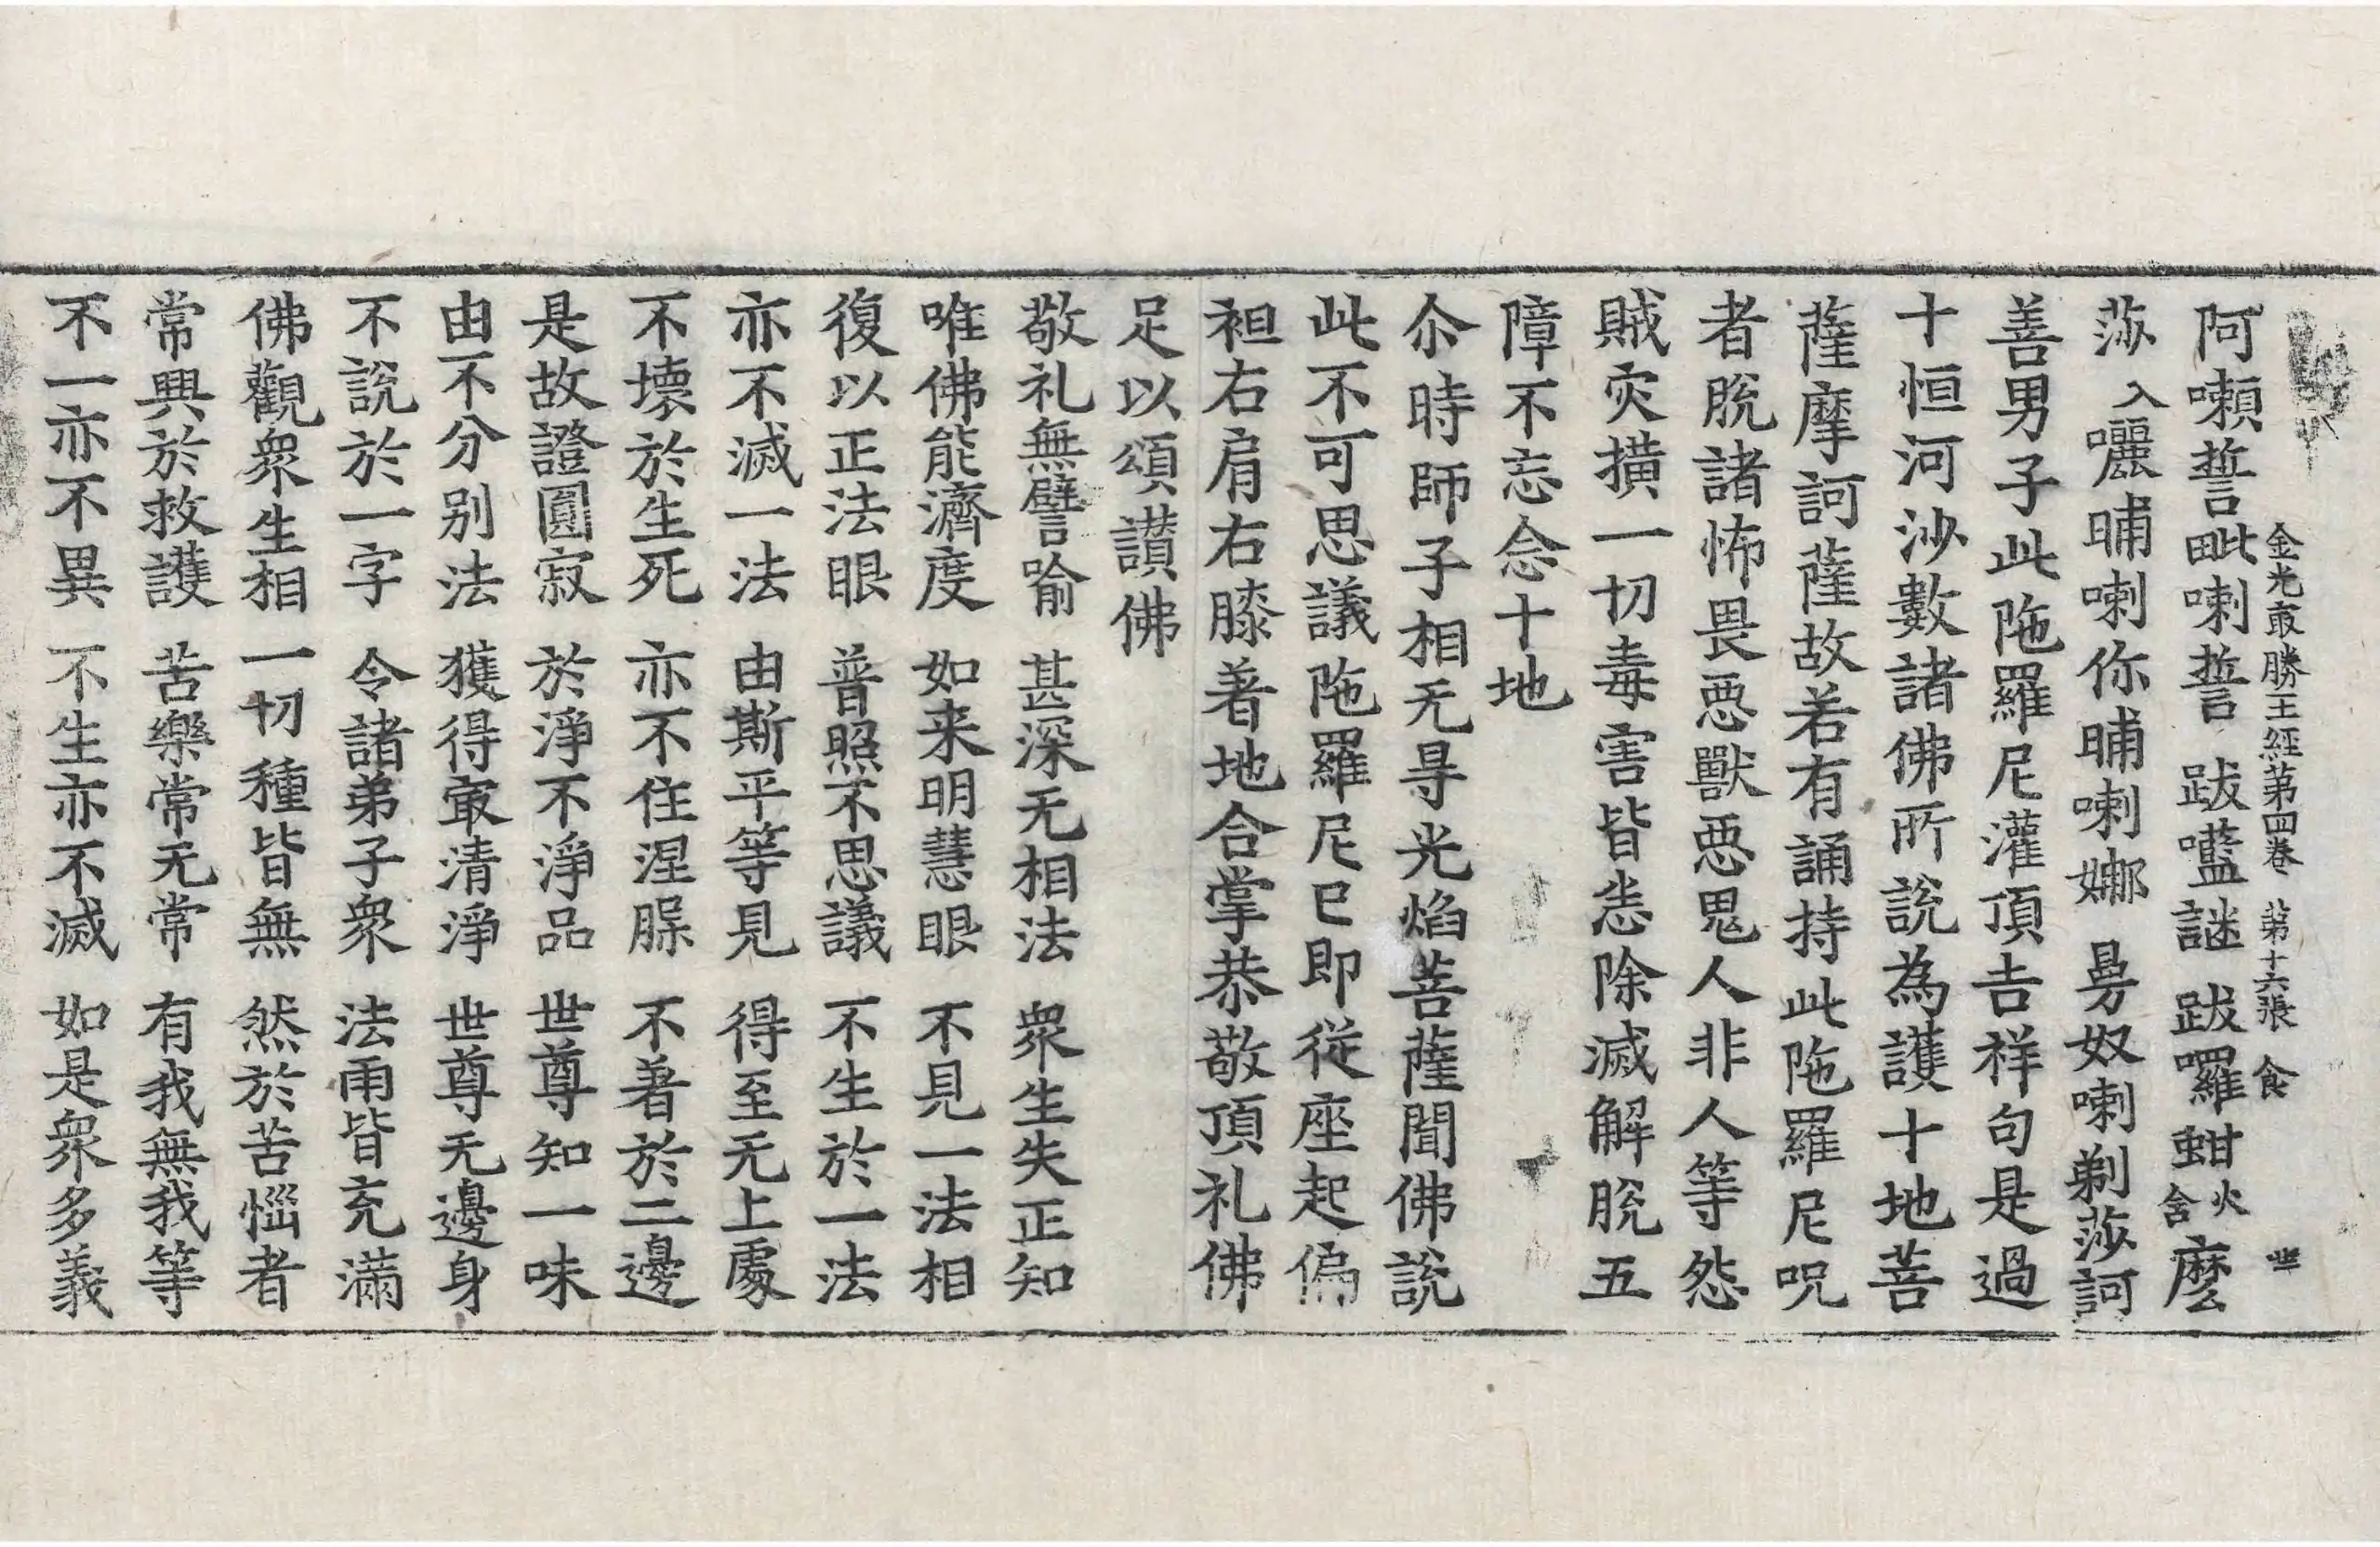 金光㝡勝王經第四卷 第十六張 食 世
阿嚩誓毗喇誓 跋㘕謎 跋囉蚶火含麽
莎入囇晡喇你晡喇娜 曷奴喇剃莎訶
善男子此陁羅尼灌頂吉祥句是過
十恒河沙數諸佛所說為護十地菩
薩摩訶薩故若有誦持此陁羅尼呪
者脫諸怖畏惡獸惡鬼人非人等怨
賊灾撗一切毒害皆悉除滅解脫五
障不忘念十地
尒時師子相无㝵光焰菩薩聞佛說
此不可思議陁羅尼已即從座起偏
袒右肩右膝著地合掌恭敬頂礼佛
足以頌讃佛
敬礼無譬喻 甚深无相法 衆生失正知
唯佛能濟度 如来明慧眼 不見一法相
復以正法眼 普照不思議 不生於一法
亦不滅一法 由斯平等見 得至无上處
不壞於生死 亦不住涅槃 不著於二邊
是故證圓寂 於淨不淨品 世尊知一味
由不分别法 獲得㝡清淨 世尊无邊身
不說於一字 令諸弟子衆 法雨皆充滿
佛觀衆生相 一切種皆無 然於苦惱者
常興於救護 苦樂常无常 有我無我等
不一亦不異 不生亦不滅 如是衆多義